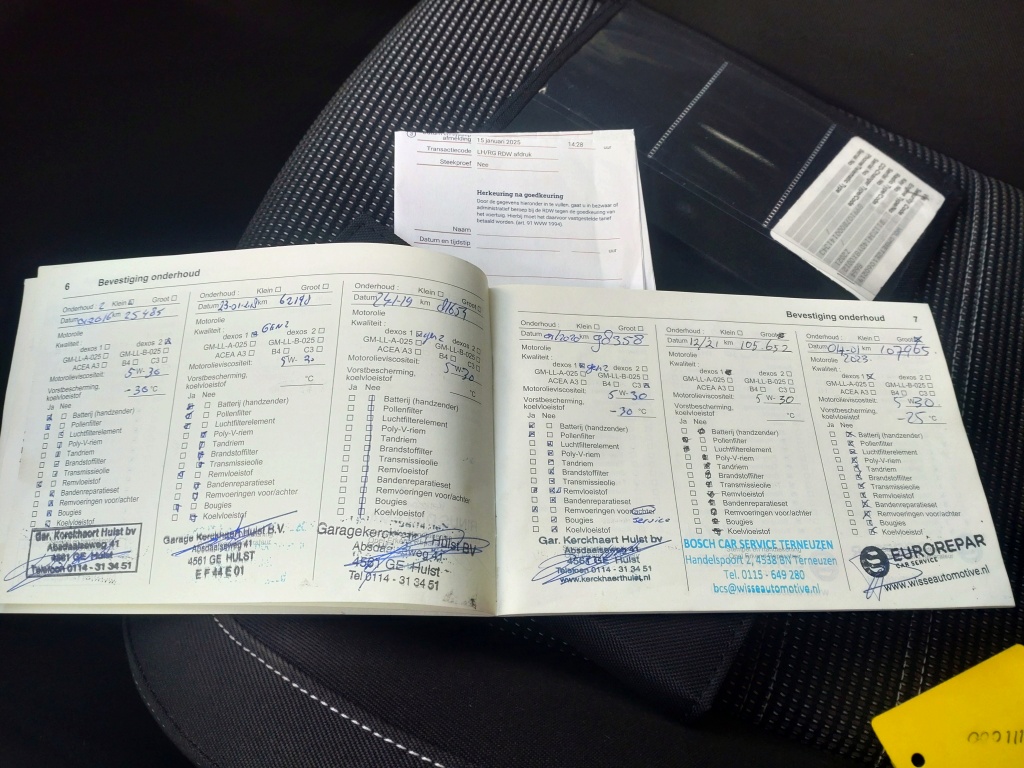 afmelding 15 januari 2025 14:28 uur
Transactiecode LH/RG RDW afdruk
Steekproef Nee
Herkeuring na goedkeuring
Door de gegevens hieronder in te vullen, gaat u in bezwaar of
administratief beroep bij de RDW tegen de goedkeuring van
het voertuig. Hierbij moet het daarvoor vastgestelde tarief
betaald worden. (art. 91 WVW 1994).
Naam
Datum en tijdstip uur
6 Bevestiging onderhoud
Onderhoud : 2 Klein Groot
Datum km 25485
Motorolie
Kwaliteit : dexos 1 dexos 2
GM-LL-A-025 GM-LL-B-025
ACEA A3 B4 C3
Motorolieviscositeit: 5 W- 30
Vorstbescherming,
koelvloeistof -30 °C
Ja Nee
Batterij (handzender)
Pollenfilter
Luchtfilterelement
Poly-V-riem
Tandriem
Brandstoffilter
Transmissieolie
Remvloeistof
Bandenreparatieset
Remvoeringen voor/achter
Bougies
Koelvloeistof
Gar. Kerckhaert Hulst bv
Absdaalseweg 41
4561 GE Hulst
Telefoon 0114 - 31 34 51
Onderhoud : Klein Groot
Datum km 62198
Motorolie
Kwaliteit : GEN2
dexos 1 dexos 2
GM-LL-A-025 GM-LL-B-025
ACEA A3 B4 C3
Motorolieviscositeit: 5 W- 30
Vorstbescherming,
koelvloeistof °C
Ja Nee
Batterij (handzender)
Pollenfilter
Luchtfilterelement
Poly-V-riem
Tandriem
Brandstoffilter
Transmissieolie
Remvloeistof
Bandenreparatieset
Remvoeringen voor/achter
Bougies
Koelvloeistof
Garage Kerckhaert Hulst B.V.
Absdaalseweg 41
4561 GE HULST
Onderhoud : Klein Groot
Datum km 81659
Motorolie
Kwaliteit :
dexos 1 gen2 dexos 2
GM-LL-A-025 GM-LL-B-025
ACEA A3 B4 C3
Motorolieviscositeit: 5 W- 30
Vorstbescherming,
koelvloeistof °C
Ja Nee
Batterij (handzender)
Pollenfilter
Luchtfilterelement
Poly-V-riem
Tandriem
Brandstoffilter
Transmissieolie
Remvloeistof
Bandenreparatieset
Remvoeringen voor/achter
Bougies
Koelvloeistof
Garage Hulst BV
4561 GE Hulst
Tel 0114 - 31 34 51
Bevestiging onderhoud 7
Onderhoud : Klein Groot
Datum km 98358
Motorolie
Kwaliteit :
dexos 1 gen2 dexos 2
GM-LL-A-025 GM-LL-B-025
ACEA A3 B4 C3
Motorolieviscositeit: 5 W- 30
Vorstbescherming,
koelvloeistof -30 °C
Ja Nee
Batterij (handzender)
Pollenfilter
Luchtfilterelement
Poly-V-riem
Tandriem
Brandstoffilter
Transmissieolie
Remvloeistof
Bandenreparatieset
Remvoeringen voor/achter
Bougies service
Koelvloeistof
Gar. Kerckhaert Hulst bv
Absdaalseweg 41
4561 GE Hulst
Telefoon 0114 - 31 34 51
www.kerckhaerthulst.nl
Onderhoud : Klein Groot
Datum 12/21 km 105.652
Motorolie
Kwaliteit :
dexos 1 dexos 2
GM-LL-A-025 GM-LL-B-025
ACEA A3 B4 C3
Motorolieviscositeit: 5 W- 30
Vorstbescherming,
koelvloeistof °C
Ja Nee
Batterij (handzender)
Pollenfilter
Luchtfilterelement
Poly-V-riem
Tandriem
Brandstoffilter
Transmissieolie
Remvloeistof
Bandenreparatieset
Remvoeringen voor/achter
Bougies
Koelvloeistof
BOSCH CAR SERVICE TERNEUZEN
Handelspoort 2, 4538 BN Terneuzen
Tel. 0115 - 649 280
bcs@wisseautomotive.nl
Onderhoud : Klein Groot
Datum 04-01 km 107965
Motorolie 2023
Kwaliteit :
dexos 1 dexos 2
GM-LL-A-025 GM-LL-B-025
ACEA A3 B4 C3
Motorolieviscositeit: 5 W- 30
Vorstbescherming,
koelvloeistof -25 °C
Ja Nee
Batterij (handzender)
Pollenfilter
Luchtfilterelement
Poly-V-riem
Tandriem
Brandstoffilter
Transmissieolie
Remvloeistof
Bandenreparatieset
Remvoeringen voor/achter
Bougies
Koelvloeistof
EUROREPAR
CAR SERVICE
www.wisseautomotive.nl